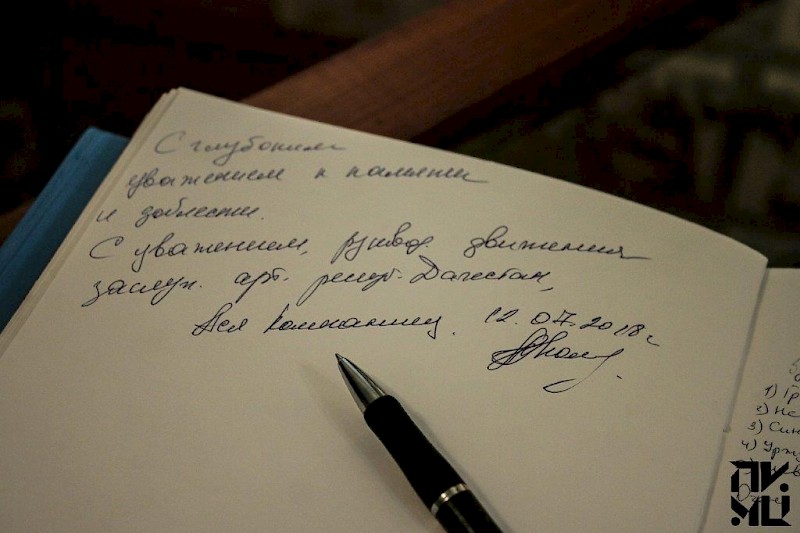 С глубоким
уважением к памяти
и доблести.
С уважением, руковод. движения
заслуж. арт. респуб. Дагестан,
Ася Компаниец. 12.07.2018 г
1) Гр
2) Не
3) Син
4) Урж
ПУ.
МЦ